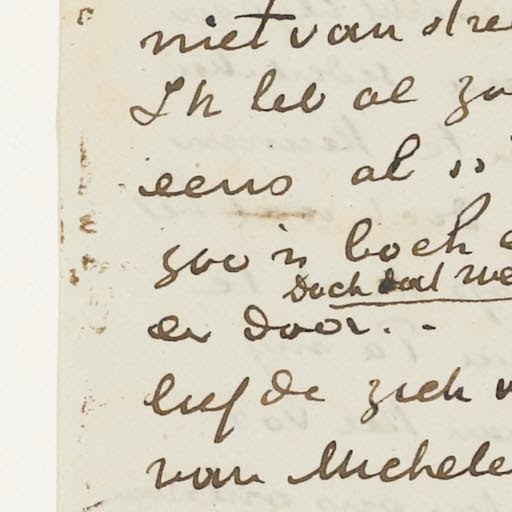 niet van
Ik heb al
eens al
zoo'n boek
Doch dat
er door. -
liefde zich
van Michele